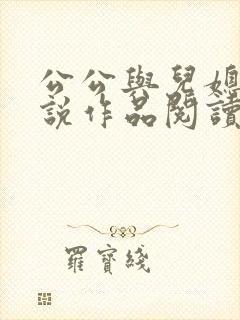 公公與兒媳
說作品閱讀
羅寶綫